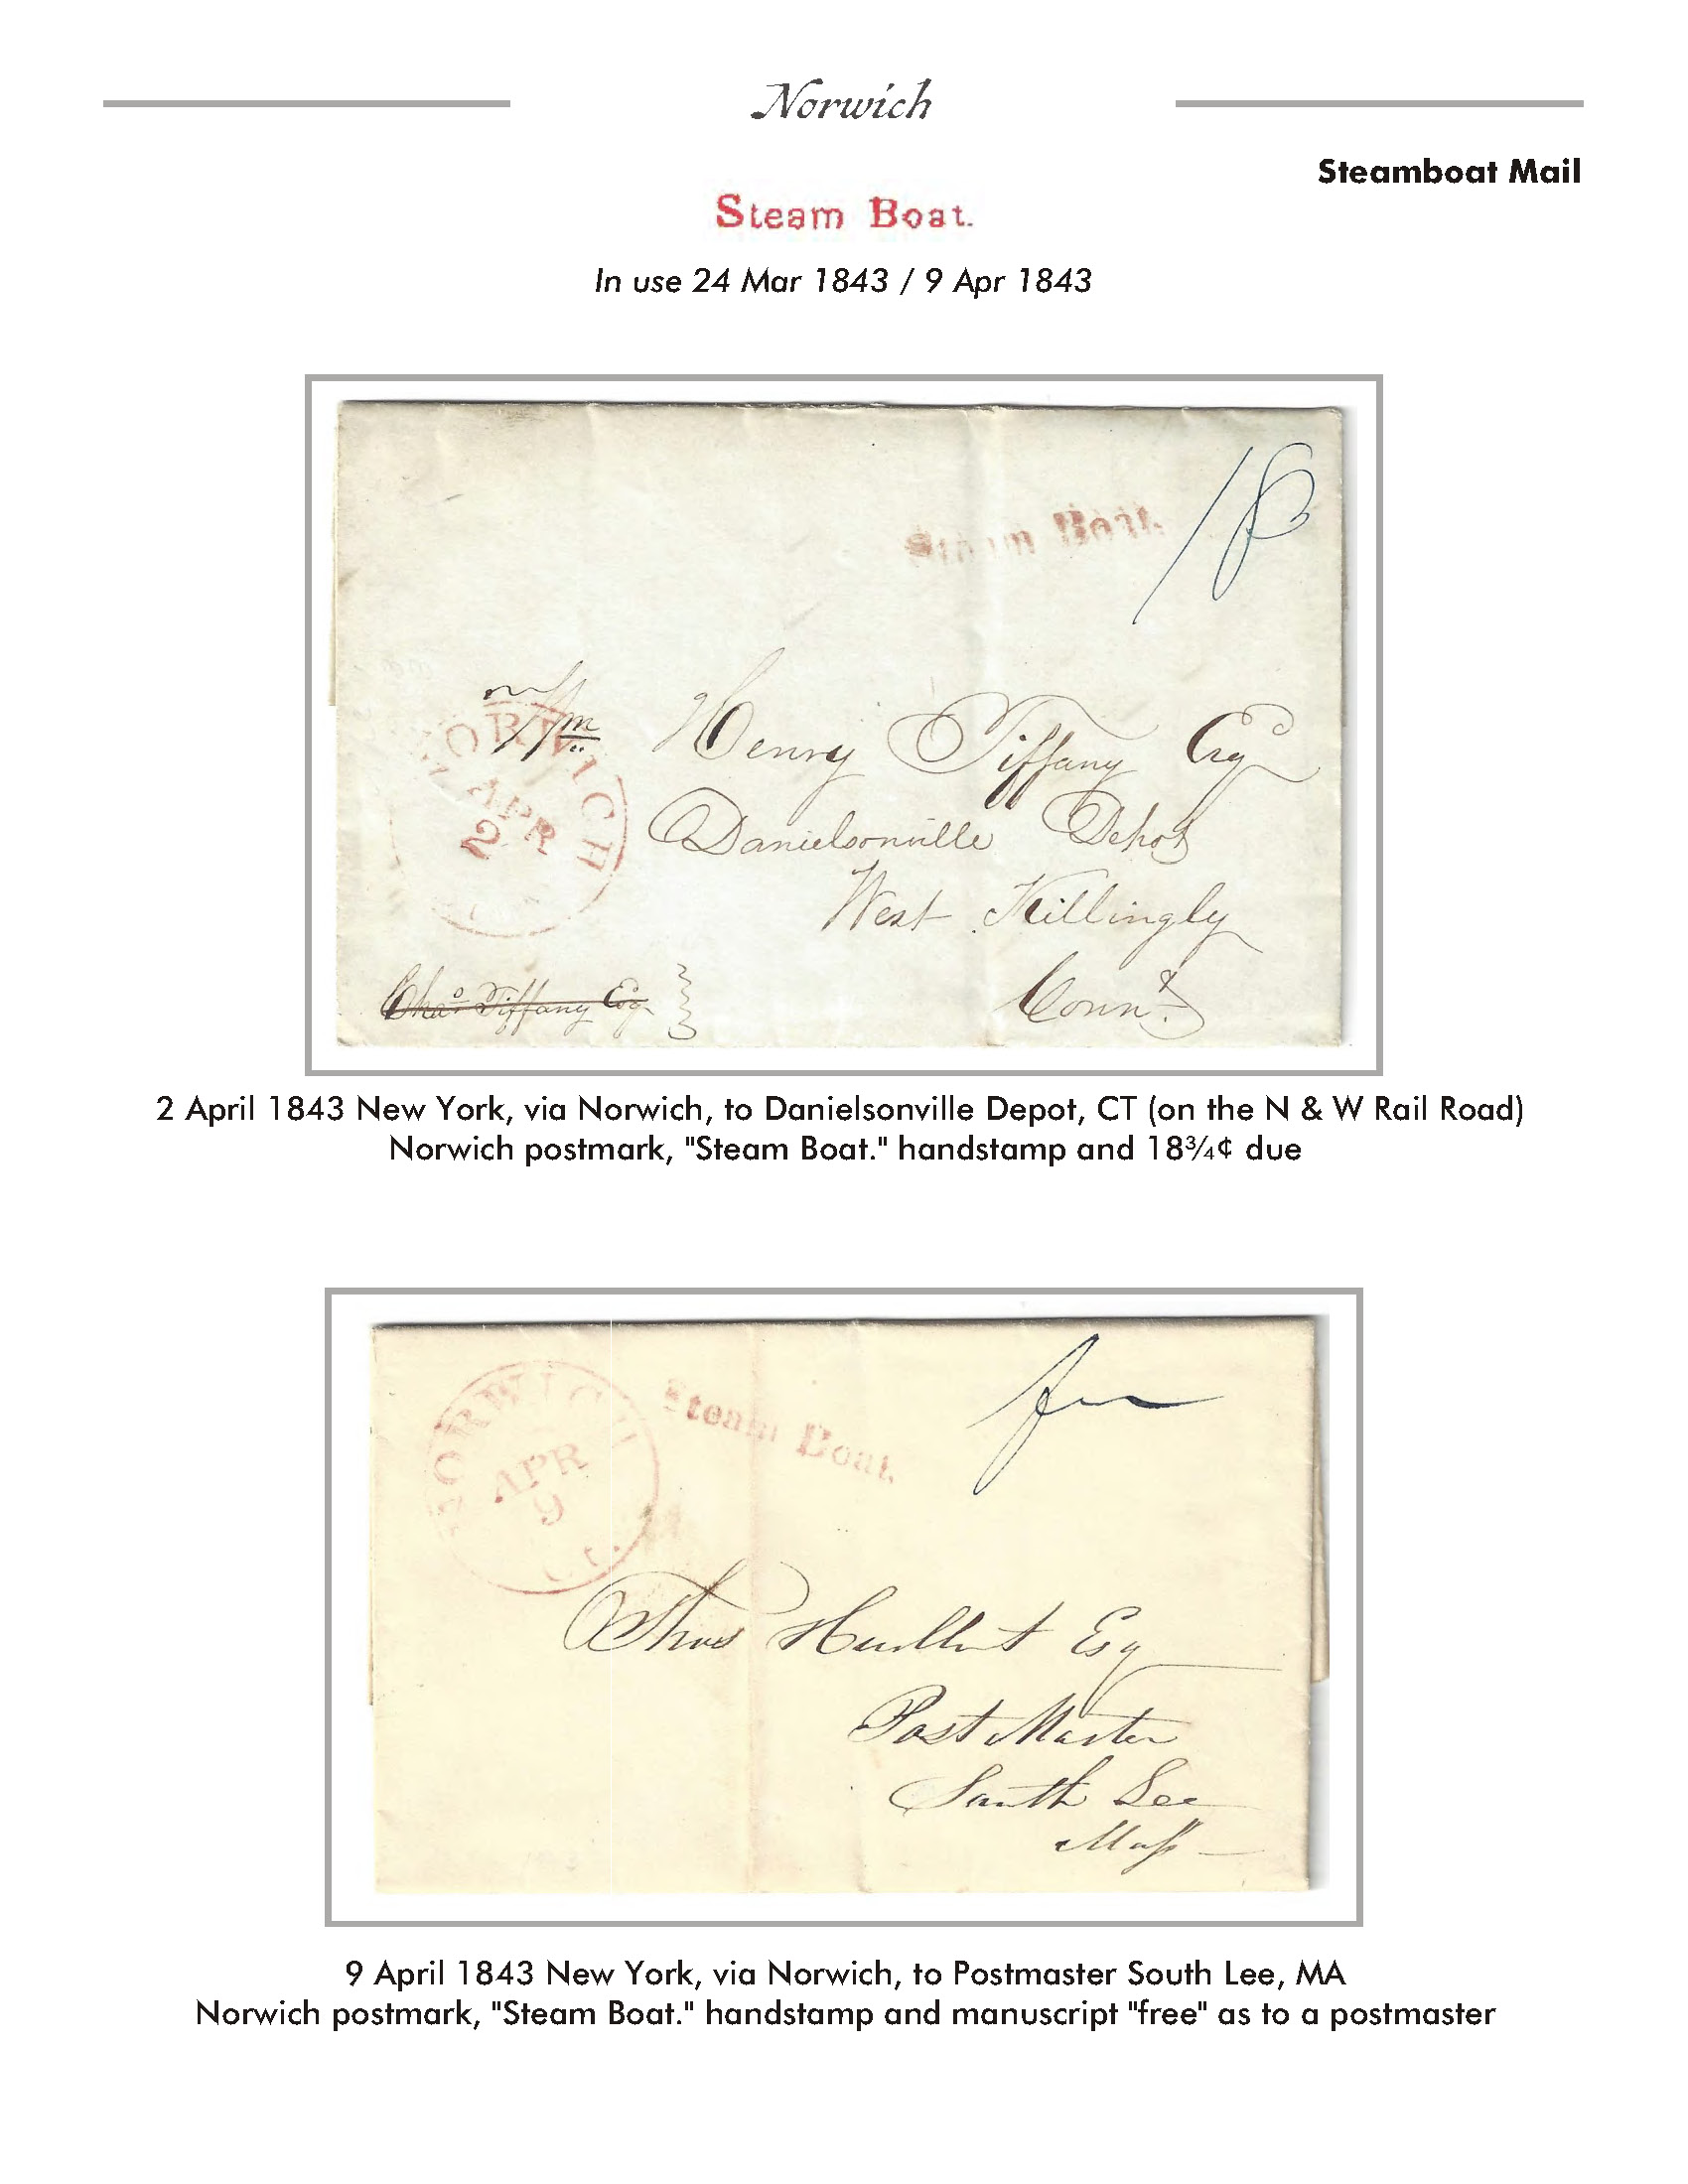 Norwich
Steamboat Mail
Steam Boat.
In use 24 Mar 1843 / 9 Apr 1843
Steam Boat.
18
NORWICH
APR
2
Wm Henry Tiffany Esq
Danielsonville Depot
West Killingly
Conn.
Chas Tiffany Esq
2 April 1843 New York, via Norwich, to Danielsonville Depot, CT (on the N & W Rail Road)
Norwich postmark, "Steam Boat." handstamp and 18¾¢ due
NORWICH
APR
9
Ct.
Steam Boat.
free
Thos Hurlbut Esq
Post Master
South Lee
Mass
9 April 1843 New York, via Norwich, to Postmaster South Lee, MA
Norwich postmark, "Steam Boat." handstamp and manuscript "free" as to a postmaster